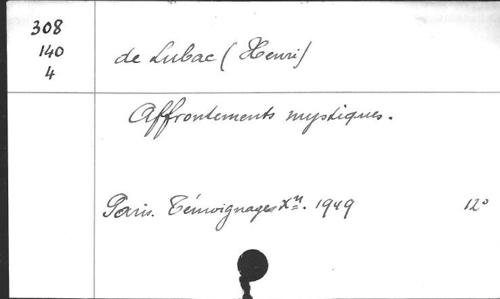 308
140
4
de Lubac (Henri)
Affrontements mystiques.
Paris. Témoignages Xⁿ. 1949 12°